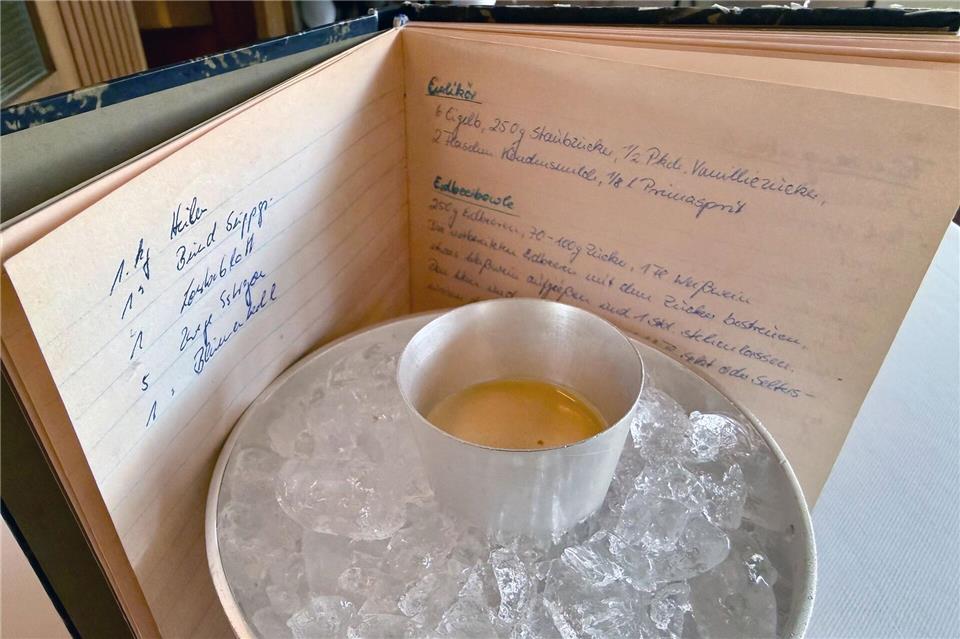 1. kg
1 Bund
1 Lorbeerblatt
5 Zweige Estragon
1 Blumenkohl
Eierlikör
6 Eigelb, 250 g Staubzucker, 1/2 Pkch. Vanillezucker,
2 Flaschen Kondensmilch, 1/8 l Primasprit
Erdbeerbowle
250 g Erdbeeren, 70-100 g Zucker, 1 Fl. Weißwein
Die vorbereiteten Erdbeeren mit dem Zucker bestreuen,
etwas Weißwein aufgießen und 1 Std. stehenlassen.
Den und Sekt oder Selters-